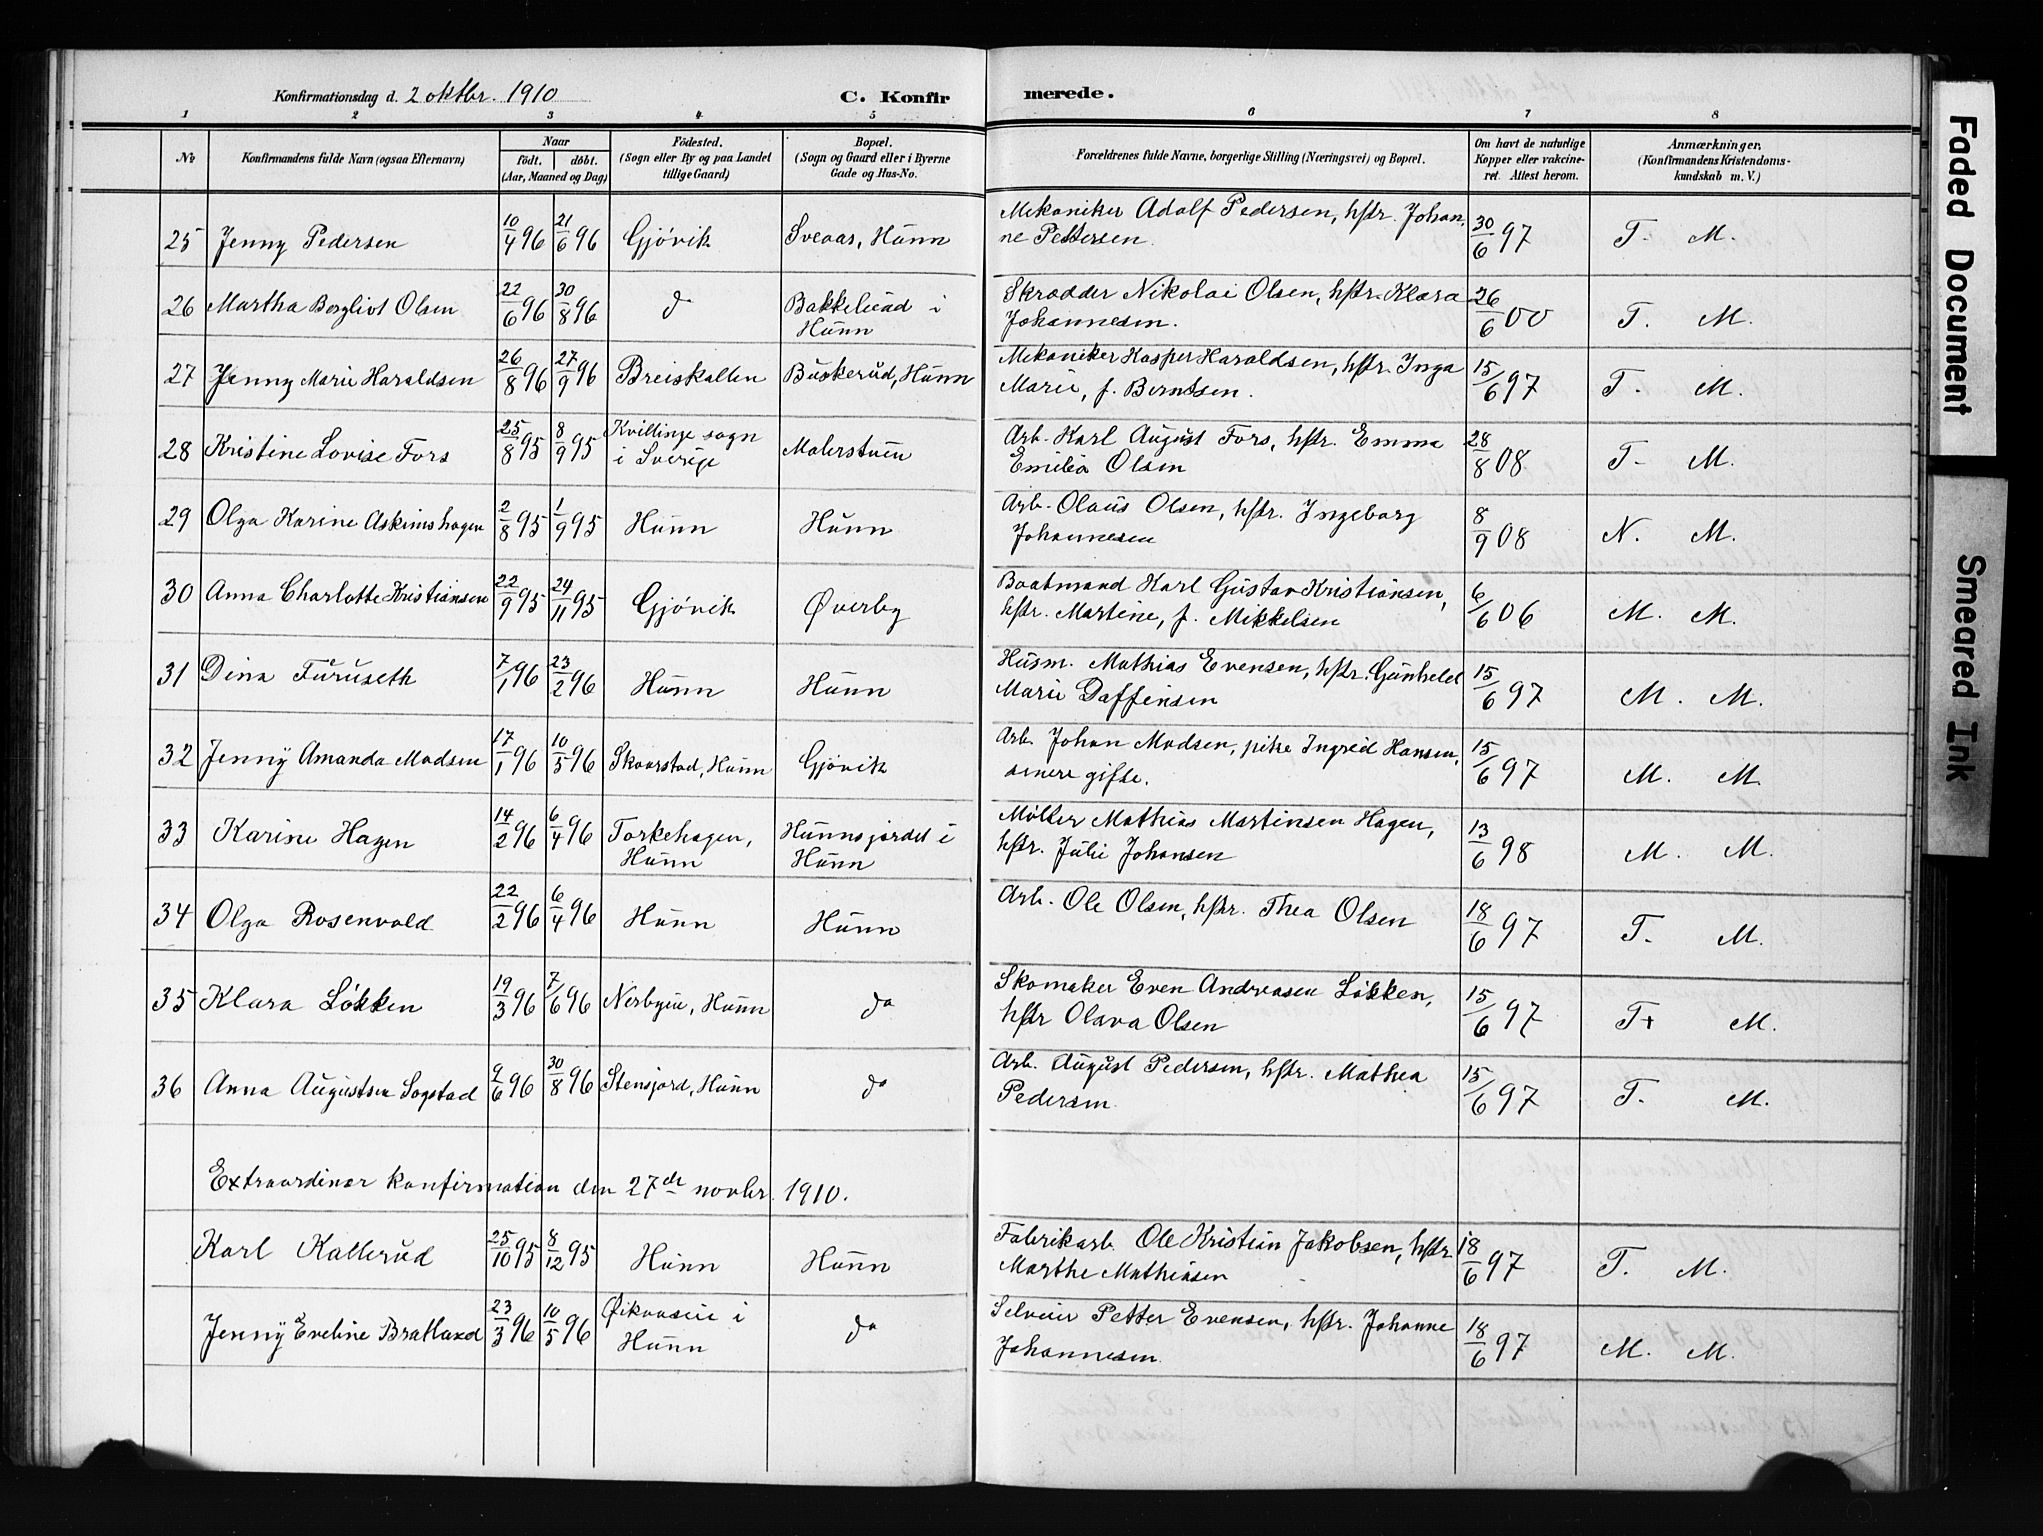 Konfirmationsdag d. 2 oktbr. 1910
C. Konfirmerede.
1 2 3 4 5 6 7 8
No
Konfirmandens fulde Navn (ogsaa Efternavn)
Naar
födt. döbt.
(Aar, Maaned og Dag)
Födested.
(Sogn eller By og paa Landet
tillige Gaard)
Bopæl.
(Sogn og Gaard eller i Byerne
Gade og Hus-No.
Forældrenes fulde Navne, borgerlige Stilling (Næringsvei) og Bopæl.
Om havt de naturlige
Kopper eller vakcine-
ret. Attest herom.
Anmærkninger.
(Konfirmandens Kristendoms-
kundskab m. V.)
25 Jenny Pedersen 10/4 96 21/6 96 Gjövik Sveaas, Hunn Mekaniker Adolf Pedersen, hstr. Johan-
ne Pettersen 30/6 97 T. M.
26 Martha Bergliot Olsen 22/6 96 30/8 96 do Bakkelund i
Hunn Skrædder Nikolai Olsen, hstr. Klara
Johannesen. 26/6 00 T. M.
27 Jenny Marie Haraldsen 26/8 96 27/9 96 Breiskallen Buskerud, Hunn Mekaniker Kasper Haraldsen, hstr. Inga
Marie, f. Berntsen. 15/6 97 T. M.
28 Kristine Lovise Fors 25/8 95 8/9 95 Kvillinge sogn
i Sverige Malerstuen Arb. Karl August Fors, hstr. Emma
Emilia Olsen 28/8 08 T. M.
29 Olga Karine Askimshagen 2/8 95 1/9 95 Hunn Hunn Arb. Olaus Olsen, hstr. Ingeborg
Johannesen 8/9 08 N. M.
30 Anna Charlotte Kristiansen 22/9 95 24/11 95 Gjövik Øverby Baatmand Karl Gustav Kristiansen,
hstr. Martine, f. Mikkelsen 6/6 06 M. M.
31 Dina Furuseth 7/1 96 23/2 96 Hunn Hunn Husm. Mathias Evensen, hstr. Gunhild
Marie Daffinsen 15/6 97 M. M.
32 Jenny Amanda Madsen 17/1 96 10/5 96 Skaarstad, Hunn Gjövik Arb. Johan Madsen, pike Ingrid Hansen,
senere gifte. 15/6 97 M. M.
33 Karine Hagen 14/2 96 6/4 96 Torkehagen,
Hunn Hunnsjordet i
Hunn Møller Mathias Martinsen Hagen,
hstr. Julie Johansen 13/6 98 M. M.
34 Olga Rosenvold 22/2 96 6/4 96 Hunn Hunn Arb. Ole Olsen, hstr. Thea Olsen 18/6 97 T. M.
35 Klara Løkken 19/3 96 7/6 96 Nerbyen, Hunn do Skomaker Even Andreasen Løkken,
hstr Olava Olsen 15/6 97 T+ M.
36 Anna Augustsen Sogstad 9/6 96 30/8 96 Stensjord, Hunn do Arb. August Pedersen, hstr. Mathea
Pedersen 15/6 97 T. M.
Extraordinær konfirmation den 27de novbr. 1910.
Karl Kallerud 25/10 95 8/12 95 Hunn Hunn Fabrikarb. Ole Kristian Jakobsen, hstr
Marthe Mathiasen 18/6 97 T. M.
Jenny Eveline Bratland 23/3 96 10/5 96 Øikaaseie i
Hunn do Selveier Petter Evensen, hstr. Johanne
Johannesen 18/6 97 M. M.
Faded Document
Smeared Ink